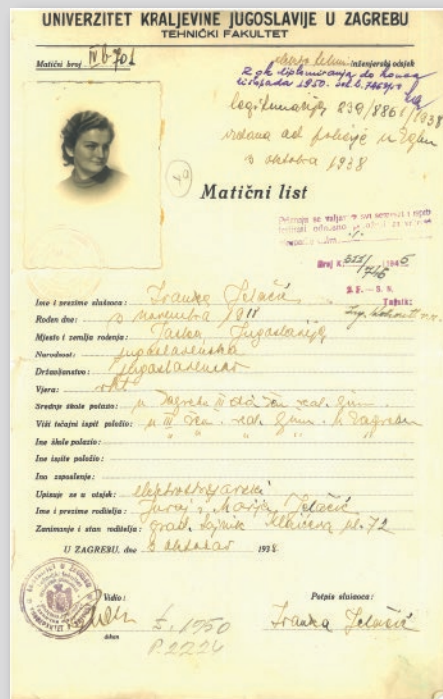 UNIVERZITET KRALJEVINE JUGOSLAVIJE U ZAGREBU
TEHNIČKI FAKULTET
Matični broj IV b 701
inženjerski odsjek
Rok diplomiranja do konca
listopada 1950.
legitimacija 239/8861/1938
izdana od policije u Zgbu
3 oktobra 1938
40
Matični list
Priznaje se valjan
Broj X. 311/746 1945
S. F. – S. N.
Tajnik:
Ime i prezime slušača: Ivanka Jelačić
Rođen dne: 3 novembra 1918
Mjesto i zemlja rođenja: Jaska Jugoslavija
Narodnost: jugoslavenska
Državljanstvo: jugoslavensko
Vjera: rkt
Srednje škole polazio: u Zagrebu III žen. real. gim.
Viši tečajni ispit položio: u III žen. real. gimn. u Zagrebu
Ine škole polazio: " " " "
Ine ispite položio:
Ino zaposlenje:
Upisuje se u odsjek: elektrostrojarski
Ime i prezime roditelja: Juraj i Marija Jelačić
Zanimanje i stan roditelja: grad. Klaićeva ul. 72
U ZAGREBU, dne 3 oktobar 1938
Vidio:
dekan
Ž. 1950
P. 2224
Potpis slušača:
Ivanka Jelačić